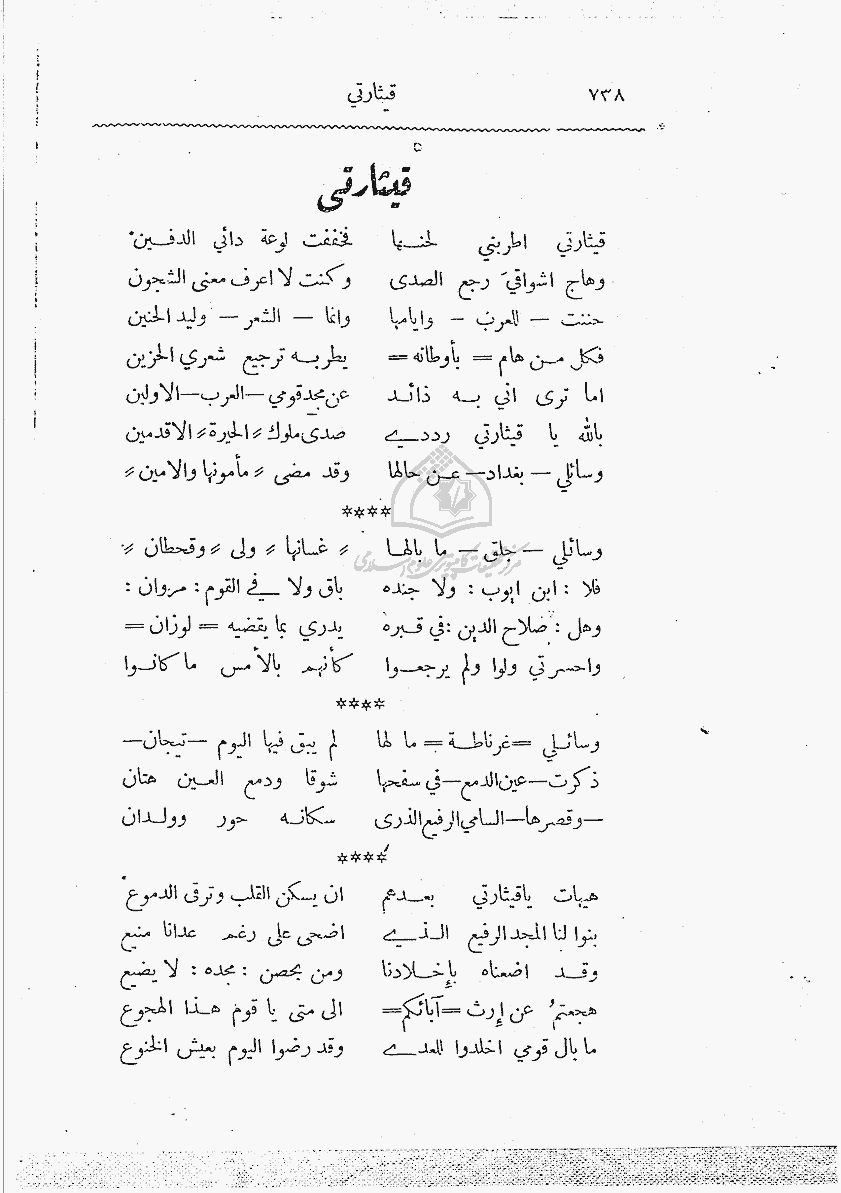 ٧٣٨ قيثارتي
قيثارتي
قيثارتي اطربني لحنـها فخففت لوعة دائي الدفـين
وهاج اشواقي رجع الصدى وكنت لا اعرف معنى الشجون
حننت — للعرب — وايامها وانما — الشعر — وليد الحنين
فكل مـن هام = بأوطانه = يطربـه ترجيع شعري الحزين
اما ترى اني بـه ذائـد عن مجد قومي — العرب — الاولين
بالله يا قيثارتي رددي صدى ملوك // الحيرة // الاقدمين
وسائلي — بغداد — عـن حالها وقد مضى // مأمونها والامين //
****
وسائلي — جلق — ما بالهـا // غسانها // ولى // وقحطان //
فلا : ابن ايوب : ولا جنده باق ولا في القوم : مروان :
وهل : صلاح الدين : في قبره يدري بما يقضيه = لوزان =
واحسرتي ولوا ولم يرجعـوا كأنهم بالأمس ما كانـوا
****
وسائـلي = غرناطـة = ما لها لم يبق فيها اليوم — تيجان —
ذكرت — عين الدمع — في سفحها شوقا ودمع العـين هتان
— وقصرها — السامي الرفيع الذرى سكانـه حور وولـدان
****
هيهات ياقيثارتي بعـدهم ان يسكن القلب وترقى الدموع
بنوا لنا المجد الرفيع الـذي اضحى على رغم عدانا منيع
وقـد اضعناه بإخـلادنا ومن يحصن : مجده : لا يضيع
هجعتم عن إرث = آبائكم = الى متى يا قوم هـذا الهجوع
ما بال قومي اخلدوا للعدى وقد رضوا اليوم بعيش الخنوع